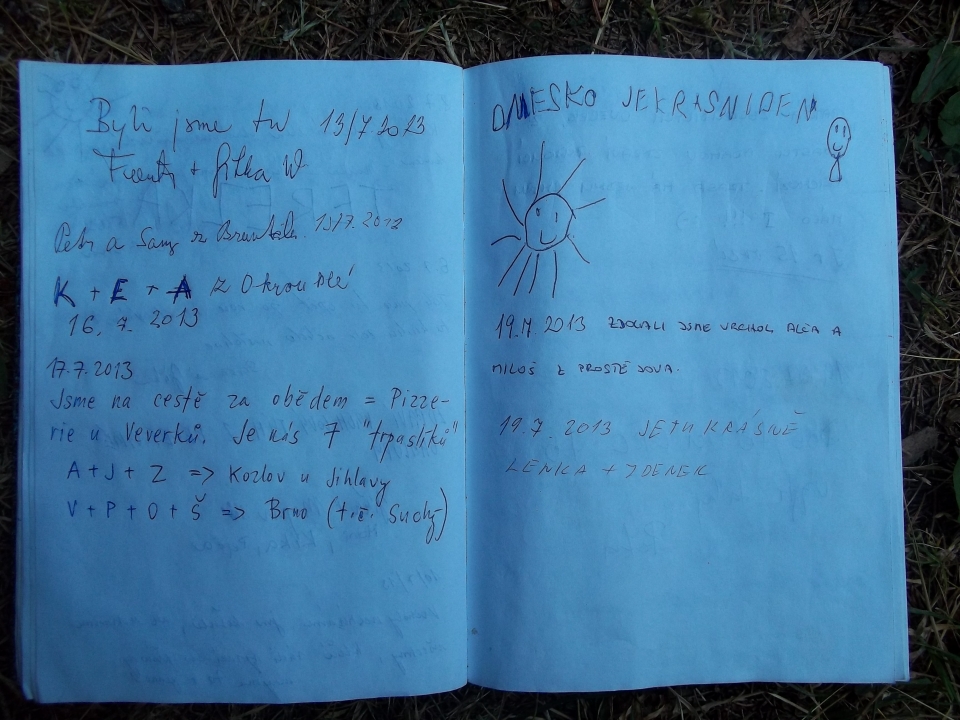 Byli jsme tu 13/7 2013
+ Jitka W
Petr a Samy z Bruntálu. 13/7. 2013
K + E + A z Okrouhlé
16. 7. 2013
17.7.2013
Jsme na cestě za obědem = Pizze-
rie u Veverků. Je nás 7 "trpaslíků"
A + J + Z => Kozlov u Jihlavy
V + P + O + Š => Brno (t.č. Suchý)
DNESKO JEKRASNIDEN
19.7. 2013 ZDOLALI JSME VRCHOL ALČA A
MILOŠ Z PROSTĚJOVA.
19.7. 2013 JETU KRÁSNĚ
LENKA + ZDENEK